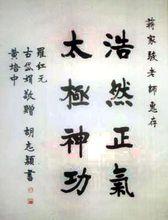 蒋家骏老师惠存
浩然正氣
太極神功
罗红元
古岱娟敬赠 胡志颖書
黄培中